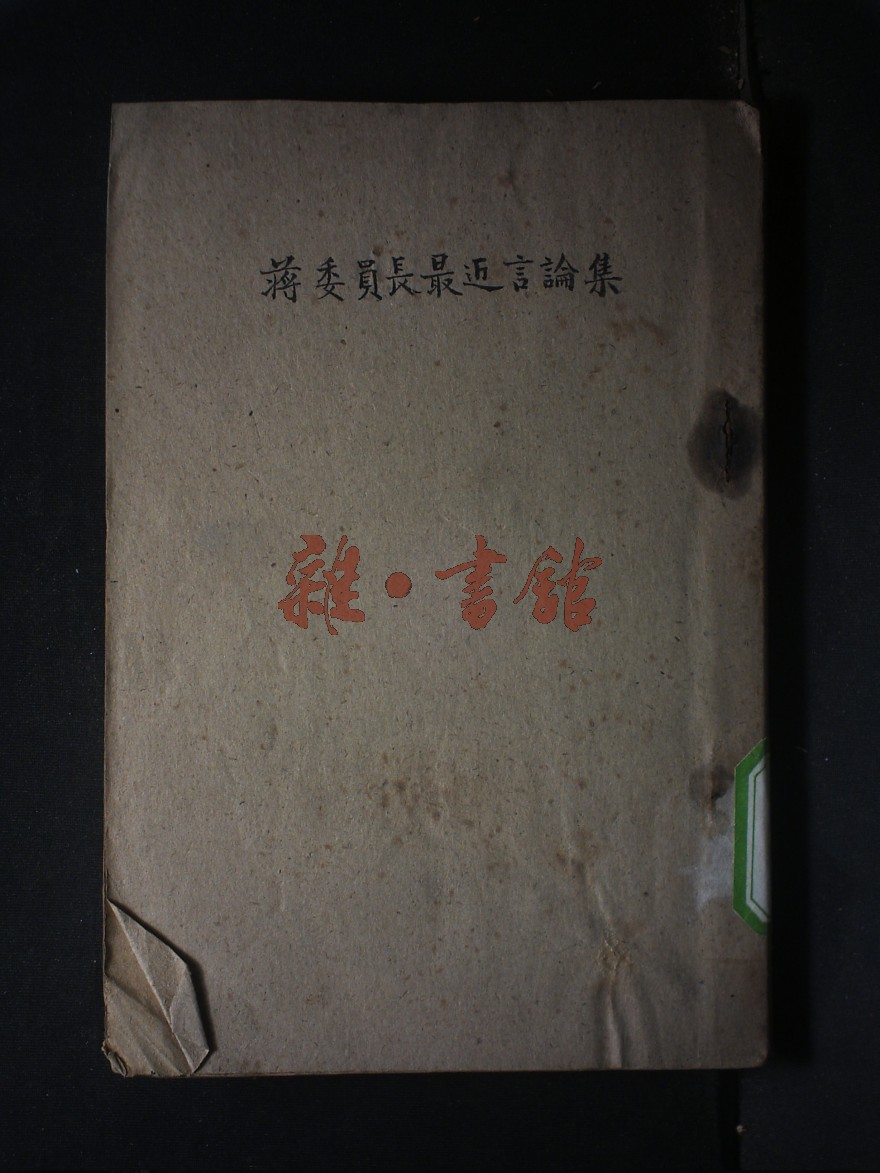 蔣委員長最近言論集
雜·書館